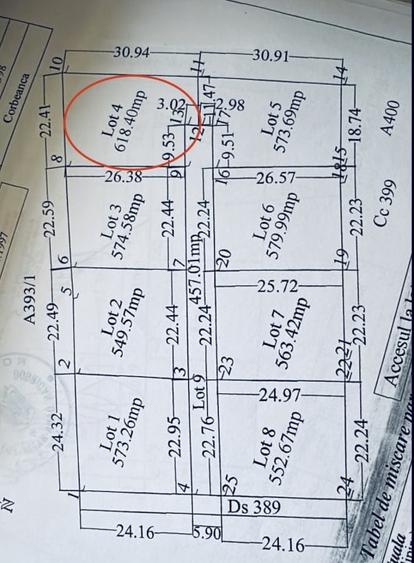 Corbeanca
30.94
30.91
10
11
14
22.41
Lot 4
618.40mp
3.02
2.98
Lot 5
573.69mp
18.74
A400
9.53
12
9.51
8
26.38
9
16
26.57
Cc 399
22.59
Lot 3
574.58mp
22.44
22.24
Lot 6
579.99mp
22.23
A393/1
6
7
457.01mp
20
19
5
25.72
22.49
Lot 2
549.57mp
22.44
22.24
Lot 7
563.42mp
22.23
2
3
23
22
21
24.97
Lot 9
24.32
Lot 1
573.26mp
22.95
22.76
Lot 8
552.67mp
22.24
1
4
25
24
Ds 389
24.16
5.90
24.16
N
Accesul la
Tabel de miscare